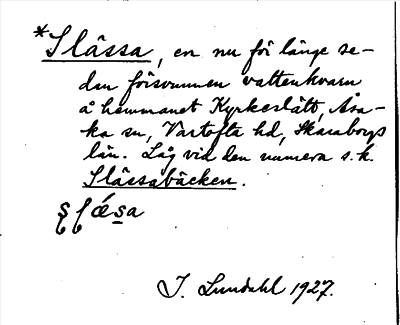 *Slässa, en nu för länge se-
dan försvunnen vattenkvarn
å hemmanet Kyrkeslätt, Åsa-
ka sn, Vartofta hd, Skaraborgs
län. Låg vid den numera s.k.
Slässabäcken.
J. Lundahl 1927.